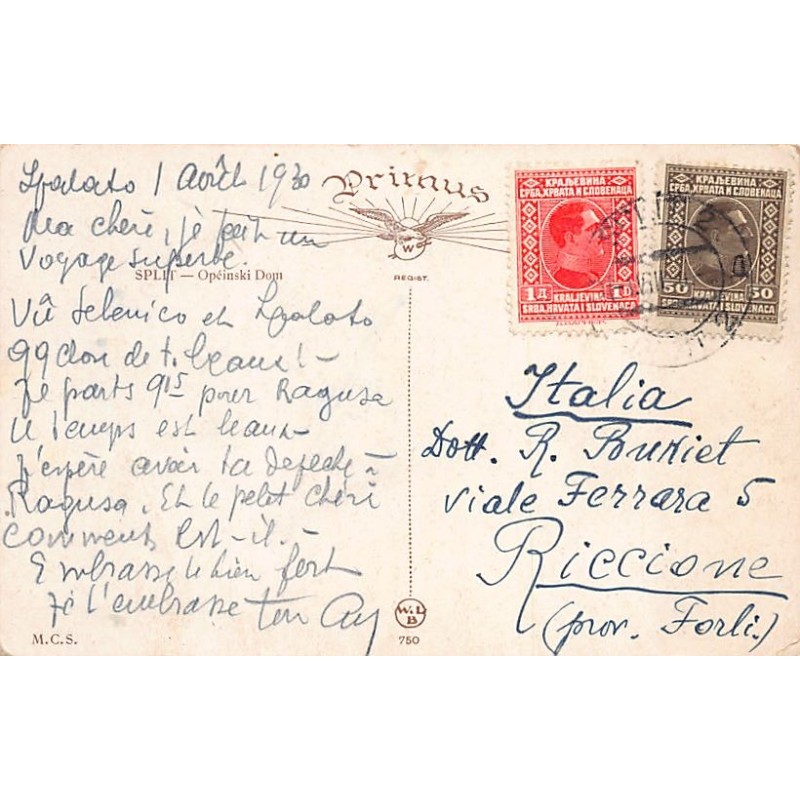 Spalato 1 Août 1930
Ma chère, je fait un
voyage superbe.
Vu Sebenico et Spalato
de t. beaux! -
Je parts 9 15 pour Ragusa
le temps est beau -
J'espère avoir ta depeche à
Ragusa. Et le petit chéri
comment est-il. -
Embrasse le bien fort
Je t'embrasse ton
Primus
W
REGIST.
SPLIT — Općinski Dom
M.C.S.
W.L.
B
750
КРАЉЕВИНА
СРБА, ХРВАТА И СЛОВЕНАЦА
1 Д 1 D
KRALJEVINA
SRBA, HRVATA I SLOVENACA
КРАЉЕВИНА
СРБА, ХРВАТА И СЛОВЕНАЦА
50 50
KRALJEVINA
SRBA, HRVATA I SLOVENACA
Italia
Dott. R.
viale Ferrara 5
Riccione
(prov. Forlì.)